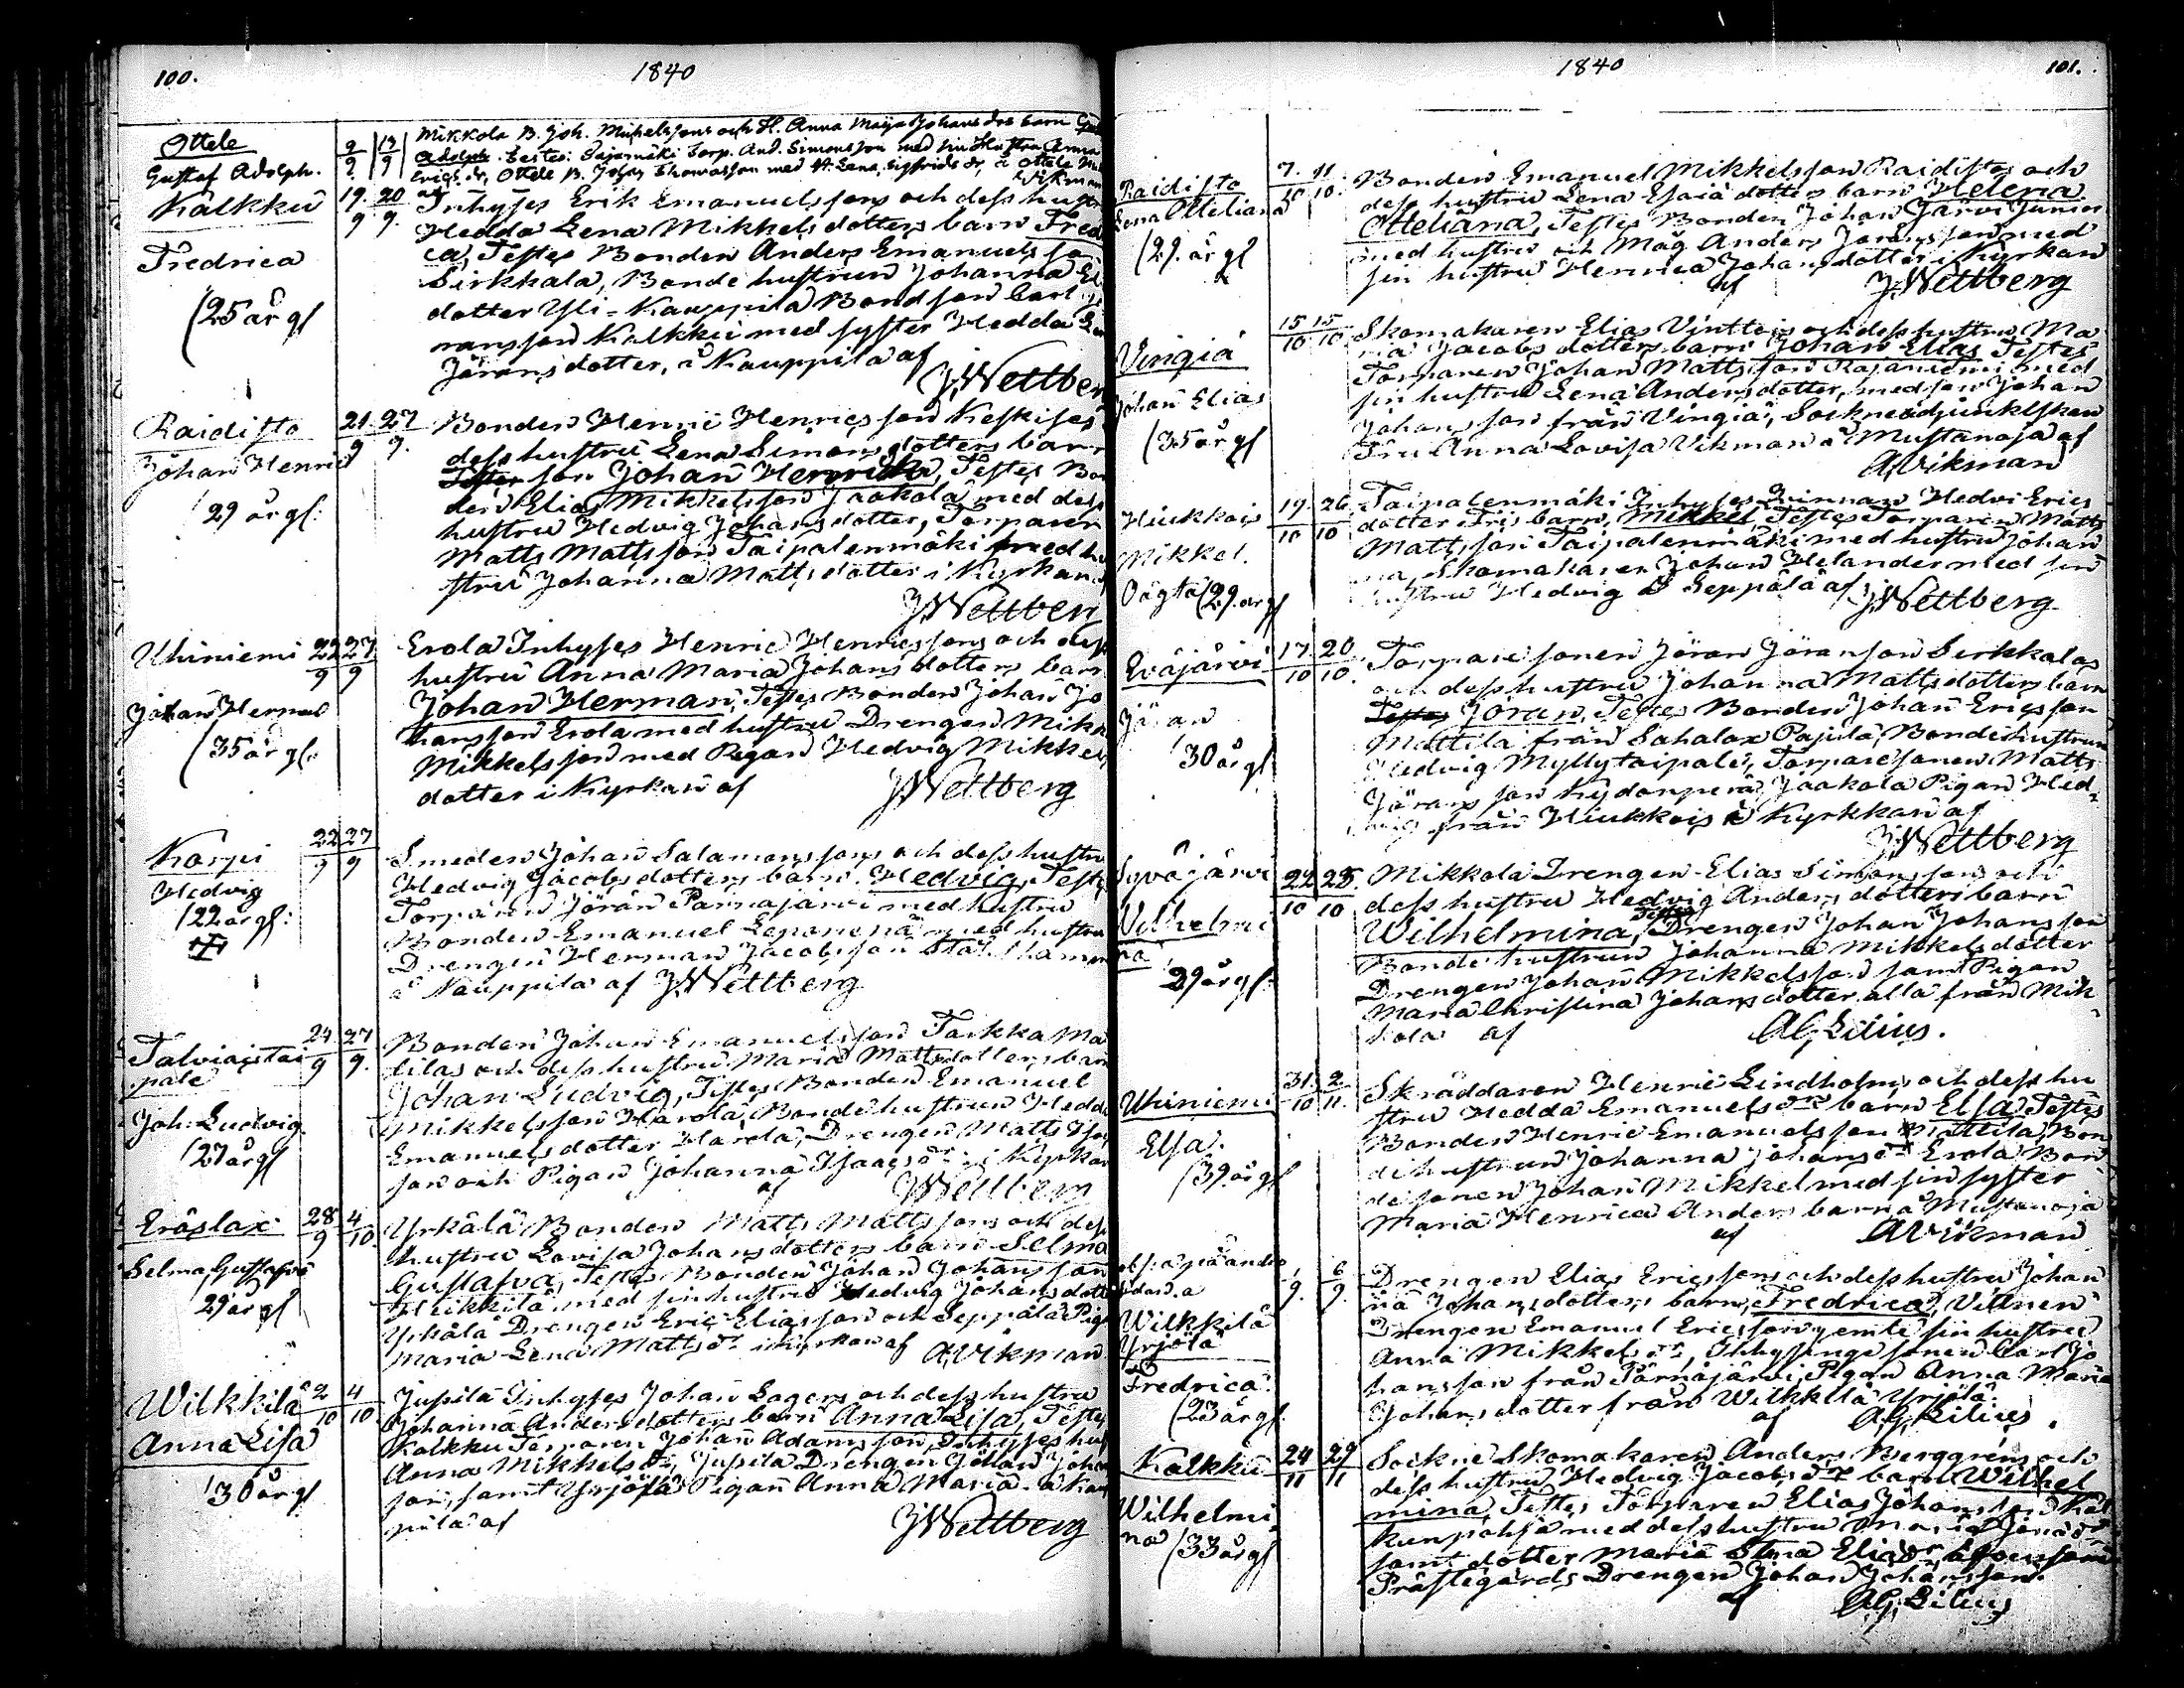 100.
1840
Ottele
Gustaf Adolph.
9/9 13/9
Mikkola B. Joh. Michelssons och H. Anna Maija Johans drs barn
Adolph. Testes: Torp. And. Simonsson med sin Hustru Anna
Erics dr, Ottele B. Johan Thomasson med H. Lena Sigfrids dr, å Ottele
af Vikman
Kälkku
19/9 20/9.
Fredrica
(25 år gl
Inhyses Erik Emanuelssons och dess hustru
Hedda Lena Mikkelsdotters barn Fred
ca, Testes Bonden Anders Emanuels so
Sirkkala, Bonde hustrun Johanna
dotter Yli-Kauppila Bondson Carl
ransson Kälkkü med syster Hedda
Jöransdotter, å Kauppila af
J Wettber
Raidisto
21/9 27/9.
Johan Henric
(29 år gl:
Bonden Henric Henricsson Keskises
dess hustru Lena Simonsdotters barn
Testes son Johan Henrich, Testes Bon
den Elias Mikkelsson Jaakola med dess
hustru Hedvig Johansdotter, Torparen
Matts Mattsson Taipalenmäki med hu
stru Johanna Mattsdotter i Kyrkan
J Wettber
Uhiniemi
22/9 27/9
Johan Herman
(35 år gl:
Erola Inhyses Henric Henricssons och dess
hustru Anna Maria Johansdotters barn
Johan Herman, Testes Bonden Johan Jo
hansson Erola med hustru Drengen Mikk
Mikkelsson med Pigan Hedvig Mikkels
dotter i Kyrkan af
J Wettberg
Korpi
22/9 27/9
Hedvig
(22 år gl:
Smeden Johan Salamonssons och dess hustru
Hedvig Jacobsdotters barn Hedvig, Testes
Torparen Jöran Parnajärvi med hustru
Bonden Emanuel med hustru
Drengen Herman Jacobsson
å Kauppila af J Wettberg
Talviaistai
pale
24/9 27/9.
Joh: Ludvig
(27 år gl
Bonden Johan Emanuelsson Tarkka Ma
tilas och dess hustru Maria Mattsdotters barn
Johan Ludvig, Testes Bonden Emanuel
Mikkelsson Harola, Bonde hustrun Hedda
Emanuelsdotter Harola, Drengen Matts
son och Pigan Johanna Isaacs dr i Kyrkan
af J Wettberg
Eräslax
28/9 4/10.
Selma Gustafva
29 år gl
Yrkälä Bonden Matts Mattssons och dess
hustru Lovisa Johansdotters barn Selma
Gustafva, Testes Bonden Johan Johansson
Heikkilä med sin hustru Hedvig Johansdott
Yrkälä Drengen Eric Eliasson och Seppälä Pig
Maria Lena Matts dr i kyrkan af A Vikman
Wilkkilä
2/10 4/10
Anna Lisa
(30 år gl
Jussila Inhyses Johan Lagers och dess hustru
Johanna Andersdotters barn Anna Lisa, Testes
Kälkku Torparen Johan Adamsson, Inhyses hu
Anna Mikkels dr, Jussila Drengen Johan Johan
son, samt Yrjölä Pigan Anna Maria å Kau
pila af
J Wettberg
1840
101.
Raidisto
7/10 11/10.
Lena Otteliana
(29 år gl
Bonden Emanuel Mikkelsson Raidistos och
dess hustru Lena Esaiä dotters barn Helena
Otteliana, Testes Bonden Johan Järvi Junior
med hustru och Måg Anders Jöransson med
sin hustru Henrica Johansdotter i Kyrkan
af J Wettberg
Vingiä
15/10 15/10
Johan Elias
(35 år gl
Skomakaren Elias Vinttois och dess hustru Ma
ria Jacobsdotters barn Johan Elias Testes
Torparen Johan Mattsson Rajaniemi med
sin hustru Lena Andersdotter, med son Johan
Johansson från Vingiä, Sockneadjunktskan
Fru Anna Lovisa Vikman å Mustanoja af
A Vikman
Hiukkois
19/10 26/10
Mikkel.
Oägta (29 år gl
Taipalenmäki Inhyses Qvinnan Hedvi Erics
dotter barn, Mikkel, Testes Torparen Matts
Mattsson Taipalenmäki med hustru Johan
na, Skomakaren Johan Helander med sin
hustru Hedvig å Seppälä af J Wettberg
Eväjärvi
17/10 20/10.
Jöran
(30 år gl
Torpare sonen Jöran Jöransson Sirkkalas
och dess hustru Johanna Mattsdotters barn
Testes Jöran, Testes Bonden Johan Ericsson
Mattila från Sahalax Pajula, Bonde hustrun
Hedvig Myllytaipale, Torpare sonen Matts
Jöransson Jaakola Pigan Hed
vig från Hiukkois i Kyrkkan af
J Wettberg
Syväjärvi
22/10 25/10.
Wilhelmi
na
29 år gl:
Mikkola Drengen Elias Simonssons och
dess hustru Hedvig Andersdotters barn
Wilhelmina, Testes Drengen Johan Johansson
Bonde hustrun Johanna Mikkelsdotter
Drengen Johan Mikkelsson samt Pigan
Maria Christina Johansdotter alla från Mik
kola af AG Lilius.
Uhiniemi
31/10 2/11.
Elsa.
(39 år gl
Skräddaren Henric Lindholms och dess hu
stru Hedda Emanuels drs barn Elsa, Testes
Bonden Henric Emanuelsson Mattila, Bon
de hustrun Johanna Johans dr Erola, Bon
de sonen Johan Mikkel med sin syster
Maria Henrica Anders barn å Mustanoja
af A Vikman
1/9. 6/9.
Wilkkilä
Yrjölä
Fredrica
(23 år gl.
Drengen Elias Ericssons och dess hustru Johan
na Johansdotters barn, Fredrica, Vittnen
Drengen Emanuel Ericsson jemte sin hustru
Anna Mikkels dr, Inhysinge sonen Carl Jo
hansson från Pärnäjärvi, Pigan Anna Maria
Johansdotter från Wilkkilä Yrjölä.
af AG Lilius.
Kälkkü
24/11 29/11
Wilhelmi
na (33 år gl
Sockne Skomakaren Anders Berggréns och
dess hustru Hedvig Jacobs drs barn Wilhel
mina, Testes Torparen Elias Johansson Käl
kunpohja med dess hustru Maria
samt dotter Maria Stina Elias dr
Prästegårds Drengen Johan Johansson.
af AG Lilius